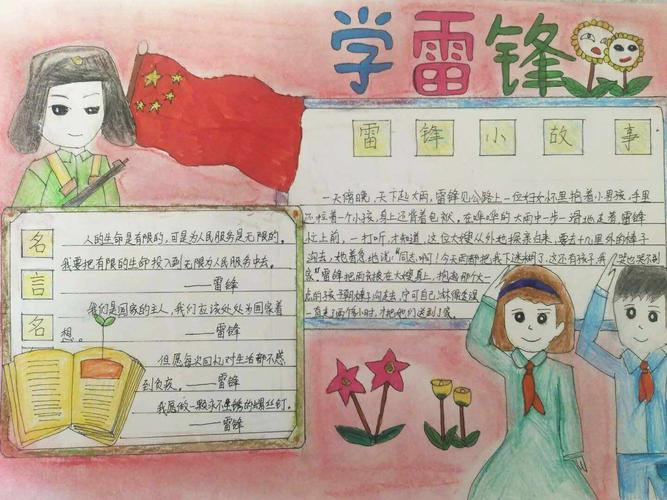 学雷锋
雷锋小故事
一天傍晚,天下起大雨,雷锋见公路上一位妇女怀里抱着小男孩,手里
还拉着一个小孩,身上还背着包袱,在哗哗的大雨中一步一滑地走着,雷锋
忙上前,一打听,才知道,这位大嫂从外地探亲归来,要去十几里外的樟子
沟去,她着急地说:"同志啊!今天雨都把我下迷糊了,这还有孩子,我哭也哭不到
家"雷锋把雨衣披在大嫂身上,抱着那个大
点的孩子朝樟子沟走去,宁可自己淋
一直走了两个小时,才把他们送到了家。
名言名
人的生命是有限的,可是为人民服务是无限的。
我要把有限的生命投入到无限为人民服务中去。
——雷锋
我们是国家的主人,我们应该处处为国家着
想。——雷锋
但愿每次回忆,对生活都不感
到负疚。——雷锋
我愿做一颗永不生锈的螺丝钉。
——雷锋